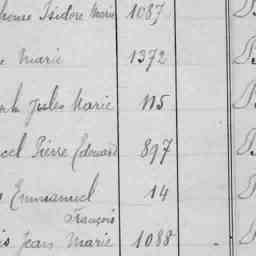 Isidore Marie 1087
Marie 1372
Jules Marie 115
Pierre Edouard 897
Emmanuel 14
François
Jean Marie 1088